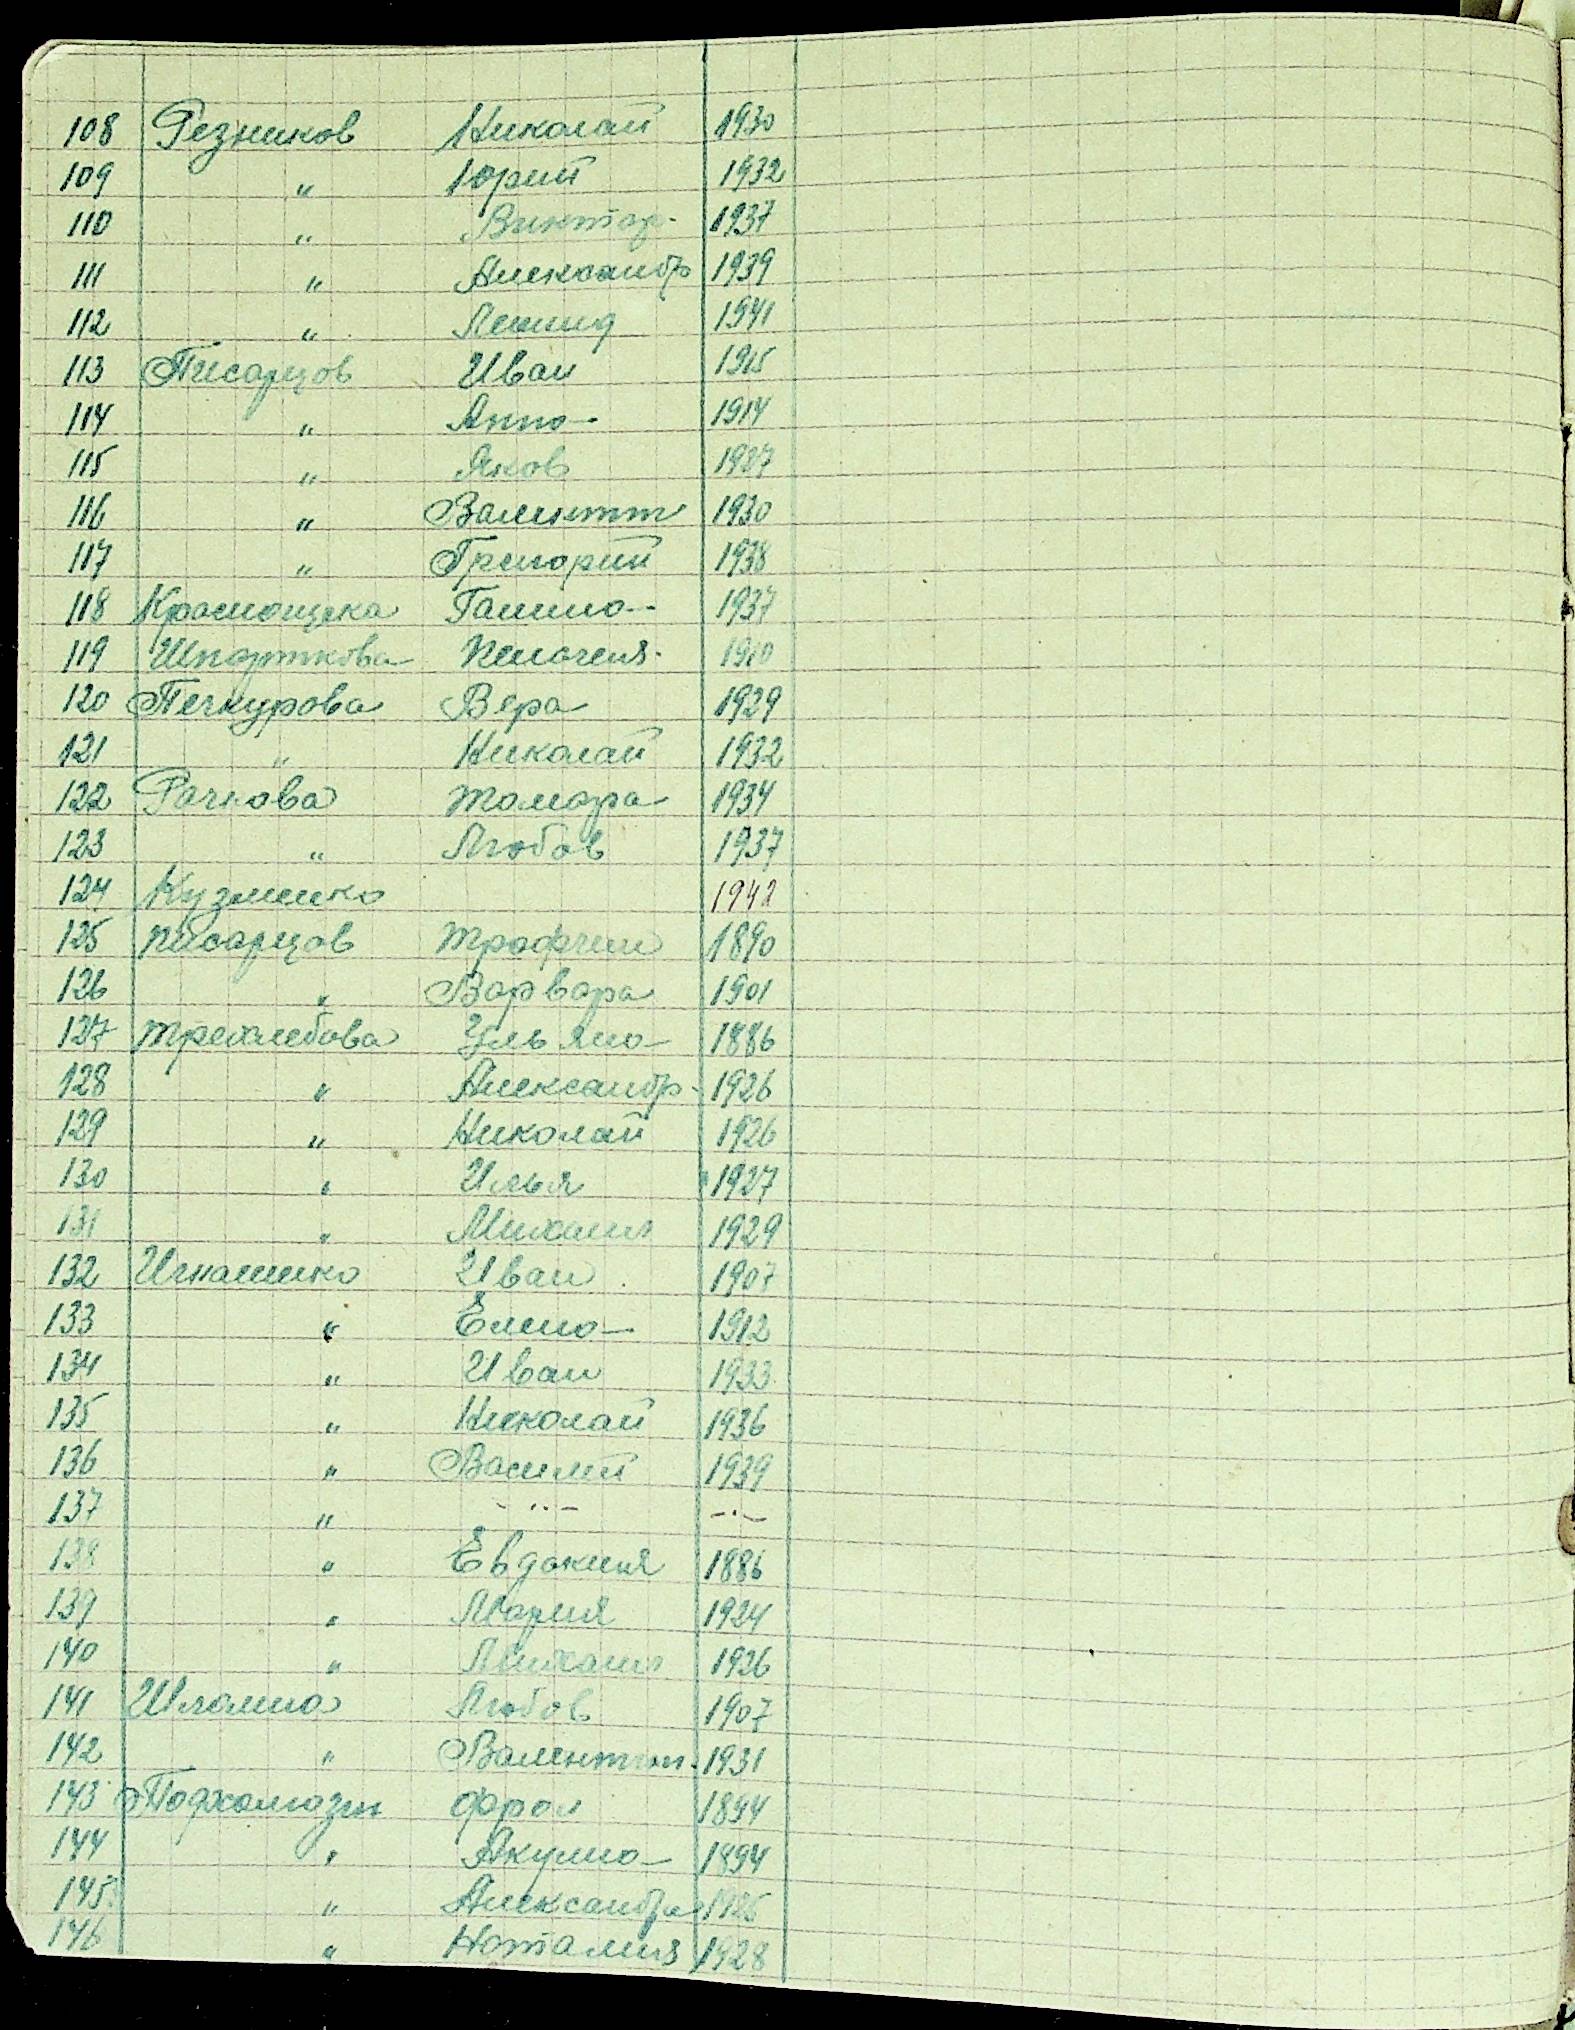 108 Резников Николай 1930
109 " Юрий 1932
110 " Виктор 1937
111 " Александр 1939
112 " Леонид 1941
113 Писарцов Иван 1915
114 " Анна 1914
115 " Яков 1927
116 " Валентин 1930
117 " Григорий 1938
118 Краснощека Галина 1937
119 Шпорткова 1910
120 Печкурова Вера 1929
121 " Николай 1932
122 Рачкова Тамара 1934
123 " Любов 1937
124 Кузменко 1942
125 Писарцов Трофим 1890
126 " Варвара 1901
127 Трехлебова Ульяна 1886
128 " Александр 1926
129 " Николай 1926
130 " Илья 1927
131 " Михаил 1929
132 Игнашенко Иван 1907
133 " Елена 1912
134 " Иван 1933
135 " Николай 1936
136 " Василий 1939
137 " - " - - " -
138 " Евдокия 1886
139 " Мария 1924
140 " Михаил 1926
141 Шламна Любов 1907
142 " Валентин 1931
143 Подхалюзин Фрол 1894
144 " Акулина 1894
145 " Александра 1926
146 " Наталия 1928